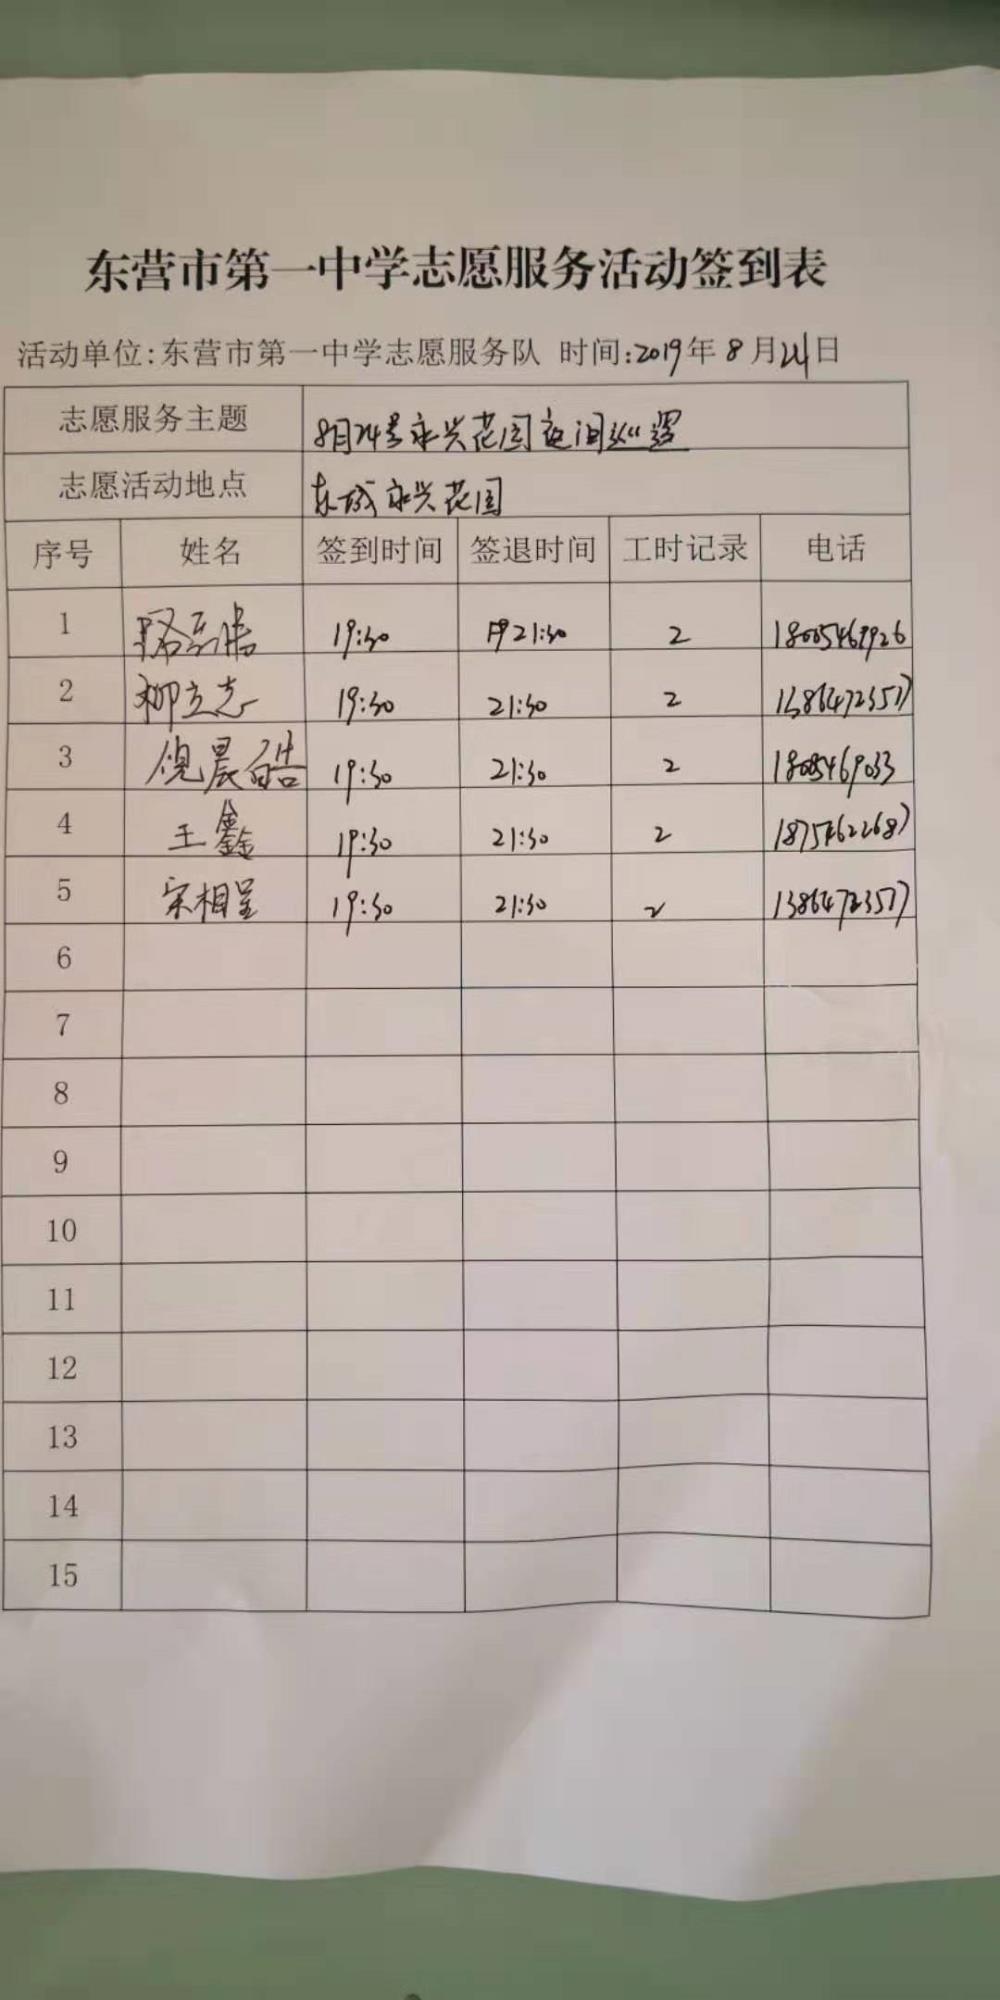 东营市第一中学志愿服务活动签到表
活动单位:东营市第一中学志愿服务队 时间:2019年8月24日
志愿服务主题 8月24号永兴花园夜间巡逻
志愿活动地点 东城永兴花园
序号 姓名 签到时间 签退时间 工时记录 电话
1 19:30 21:30 2
2 柳立志 19:30 21:30 2 13864723577
3 倪晨皓 19:30 21:30 2
4 王鑫 19:30 21:30 2
5 宋相呈 19:30 21:30 2 13864723577
6
7
8
9
10
11
12
13
14
15